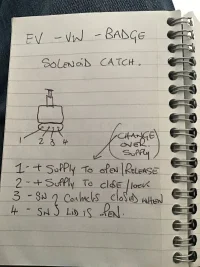 EV - VW - BADGE
SOLENOID CATCH.
1 2 3 4
CHANGE
OVER
SUPPLY
1 - + SUPPLY TO OPEN/RELEASE
2 - + SUPPLY TO CLOSE/LOCK
3 - SW } CONTACTS CLOSED WHEN
4 - SW } LID IS OPEN.